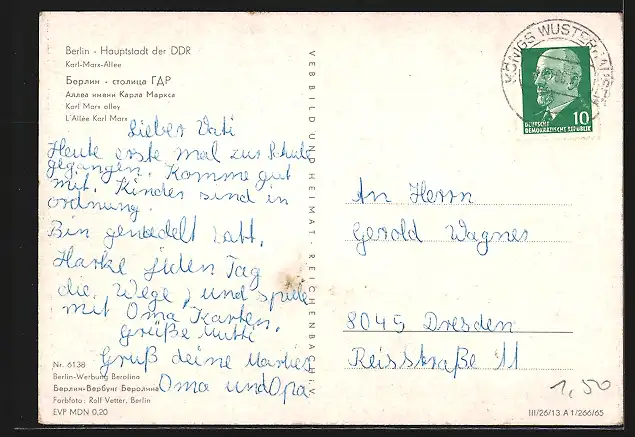 Berlin - Hauptstadt der DDR
Karl-Marx-Allee
Берлин - столица ГДР
Аллея имени Карла Маркса
Karl Marx alley
L'Allée Karl Marx
Lieber Vati
Heute erste mal zur Schule
gegangen. Komme gut
mit. Kinder sind in
ordnung.
Bin satt.
Harke jeden Tag
die Wege, und spiele
mit Oma Karten.
Grüße Mutti
Gruß deine
Oma und Opa
Nr. 6138
Berlin-Werbung Berolina
Берлин-Вербунг Беролина
Farbfoto: Rolf Vetter, Berlin
EVP MDN 0,20
VEB BILD UND HEIMAT · REICHENBACH I. V.
KÖNIGS WUSTERHAUSEN
10
DEUTSCHE
DEMOKRATISCHE REPUBLIK
An Herrn
Gerold Wagner
8045 Dresden
Reisstraße 11
1,50
III/26/13 A 1/266/65